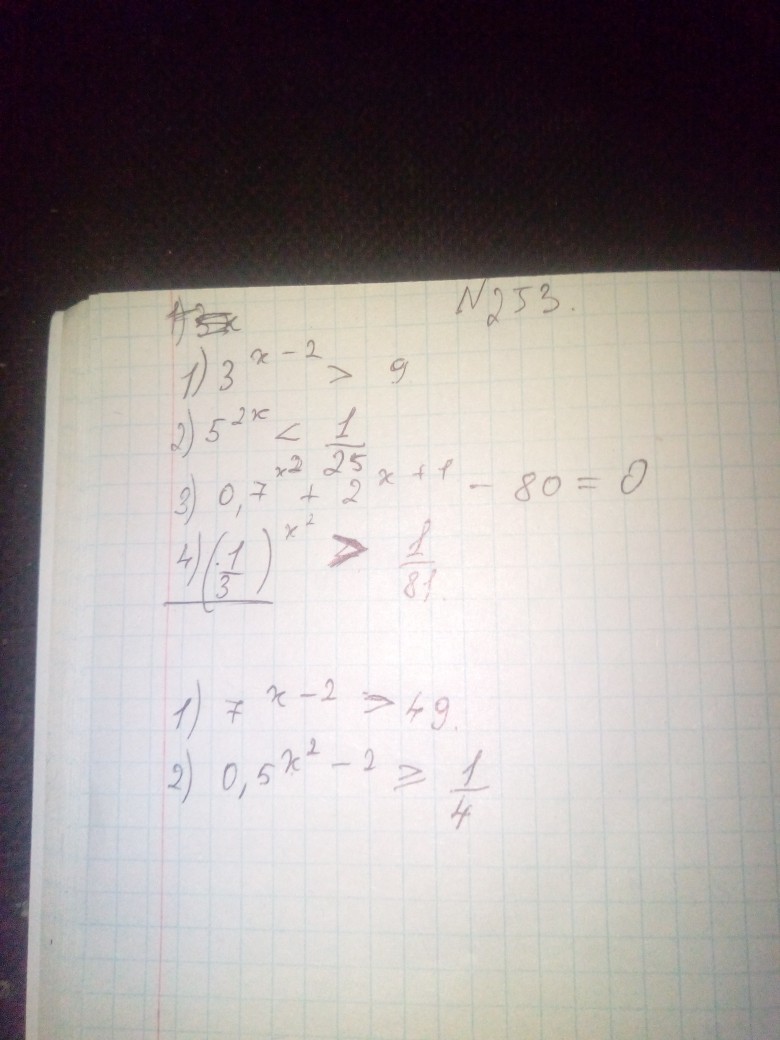 N253.
1) 3^{x-2} > 9
2) 5^{2x} < \frac{1}{25}
3) 0,7^{x^2} + 2^{x+1} - 80 = 0
4) (\frac{1}{3})^{x^2} > \frac{1}{81}.
1) 7^{x-2} > 49.
2) 0,5^{x^2-2} ≥ \frac{1}{4}